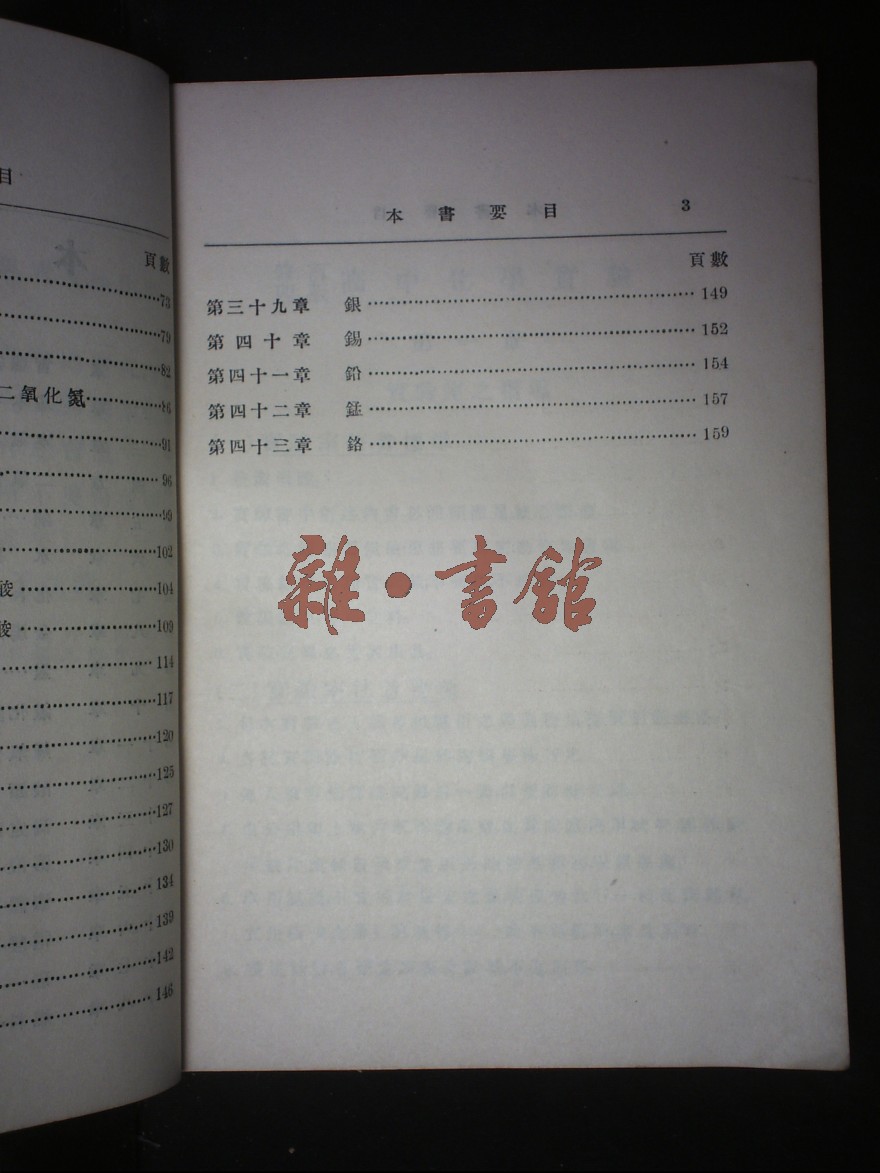 目
頁數
73
79
82
二氧化氮 86
91
96
99
102
酸 104
酸 109
114
117
120
125
127
130
134
139
142
146
本書要目 3
頁數
第三十九章 銀 149
第四十章 錫 152
第四十一章 鉛 154
第四十二章 錳 157
第四十三章 鉻 159
雜·書館